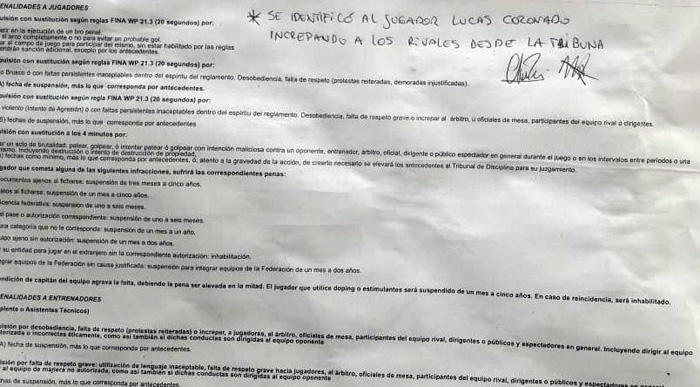 ENALIDADES A JUGADORES
ulsión con sustitución según reglas FINA WP 21.3 (20 segundos) por:
* SE IDENTIFICÓ AL JUGADOR LUCAS CORONADO
INCREPANDO A LOS RIVALES DESDE LA TRIBUNA
en la ejecución de un tiro penal.
el arco completamente o no para evitar un probable gol.
ar al campo de juego para participar del mismo, sin estar habilitado por las reglas
endrán sanción adicional, excepto por los antecedentes.
pulsión con sustitución según regla FINA WP 21.3 (20 segundos) por:
o Brusco ó con faltas persistentes inaceptables dentro del espíritu del reglamento. Desobediencia, falta de respeto (protestas reiteradas, demoradas injustificadas).
A) fecha de suspensión, más lo que corresponda por antecedentes.
pulsión con sustitución según regla FINA WP 21.3 (20 segundos) por:
violento (Intento de Agresión) ó con faltas persistentes inaceptables dentro del espíritu del reglamento. Desobediencia, falta de respeto grave o increpar al árbitro, u oficiales de mesa, participantes del equipo rival ó dirigentes.
S) fechas de suspensión, más lo que corresponda por antecedentes
ulsión con sustitución a los 4 minutos por:
ar un acto de brutalidad: patear, golpear, ó intentar patear ó golpear con intención maliciosa contra un oponente, entrenador, árbitro, oficial, dirigente o público espectador en general durante el juego o en los intervalos entre períodos o una
mismo. Incluyendo destrucción o intento de destrucción de propiedad.
) fechas como mínimo, más lo que corresponda por antecedentes, ó, atento a la gravedad de la acción, de creerlo necesario se elevará los antecedentes al Tribunal de Disciplina para su juzgamiento.
gador que cometa alguna de las siguientes infracciones, sufrirá las correspondientes penas:
ocumentos ajenos al ficharse: suspensión de tres meses a cinco años.
atos al ficharse: suspensión de un mes a cinco años.
icencia federativa: suspensión de uno a seis meses.
al pase o autorización correspondiente: suspensión de uno a seis meses.
una categoría que no le corresponde: suspensión de un mes a un año.
uipo ajeno sin autorización: suspensión de un mes a dos años.
su entidad para jugar en el extranjero sin la correspondiente autorización: inhabilitación.
egrar equipos de la Federación sin causa justificada: suspensión para integrar equipos de la Federación de un mes a dos años.
ondición de capitán del equipo agrava la falta, debiendo la pena ser elevada en la mitad. El jugador que utilice doping o estimulantes será suspendido de un mes a cinco años. En caso de reincidencia, será inhabilitado.
ENALIDADES A ENTRENADORES
plente o Asistentes Técnicos)
ulsión por desobediencia, falta de respeto (protestas reiteradas) o increpar, a jugadores, el árbitro, oficiales de mesa, participantes del equipo rival, dirigentes o públicos y espectadores en general. Incluyendo dirigir al equipo
torizada o incorrectas éticamente, como así también si dichas conductas son dirigidas al equipo oponente
A) fecha de suspensión, más lo que corresponda por antecedentes.
ulsión por falta de respeto grave: utilización de lenguaje inaceptable, falta de respeto grave hacia jugadores, al árbitro, oficiales de mesa, participantes del equipo rival, dirigentes o públicos y espectadores en general
al equipo de manera no autorizada, como así también si dichas conductas son dirigidas al equipo oponente
has de suspensión, más lo que corresponda por antecedentes.